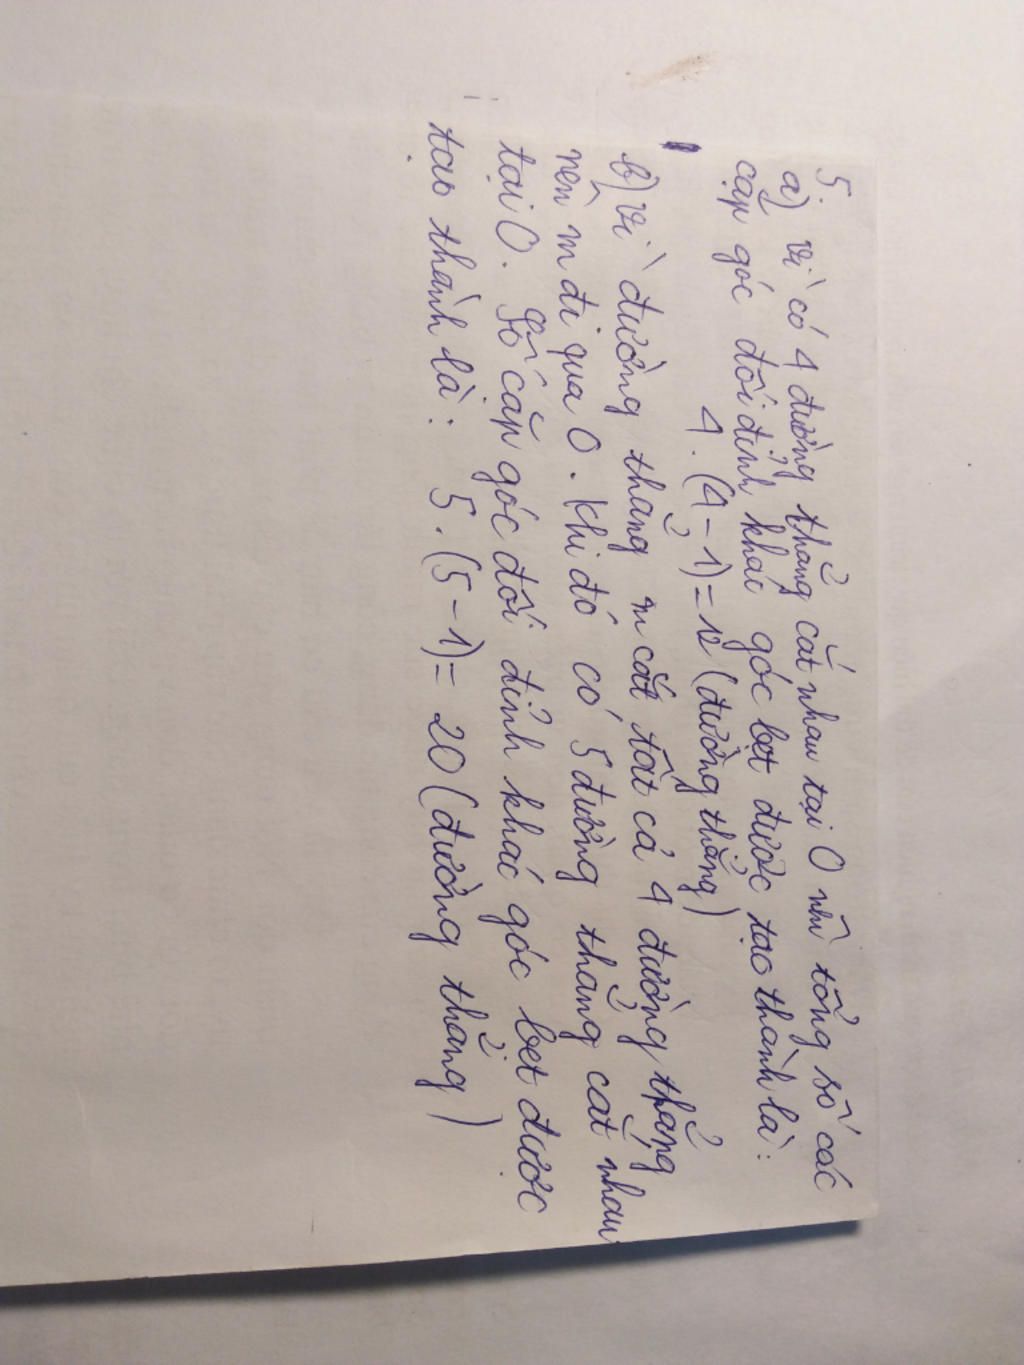 5.
a) Vì có 4 đường thẳng cắt nhau tại O nên tổng số các
cặp góc đối đỉnh khác góc bẹt được tạo thành là:
4. (4 - 1) = 12 (đường thẳng)
b) Vì đường thẳng m cắt tất cả 4 đường thẳng
nên m đi qua O. Khi đó có 5 đường thẳng cắt nhau
tại O. Số cặp góc đối đỉnh khác góc bẹt được
tạo thành là: 5. (5 - 1) = 20 (đường thẳng)